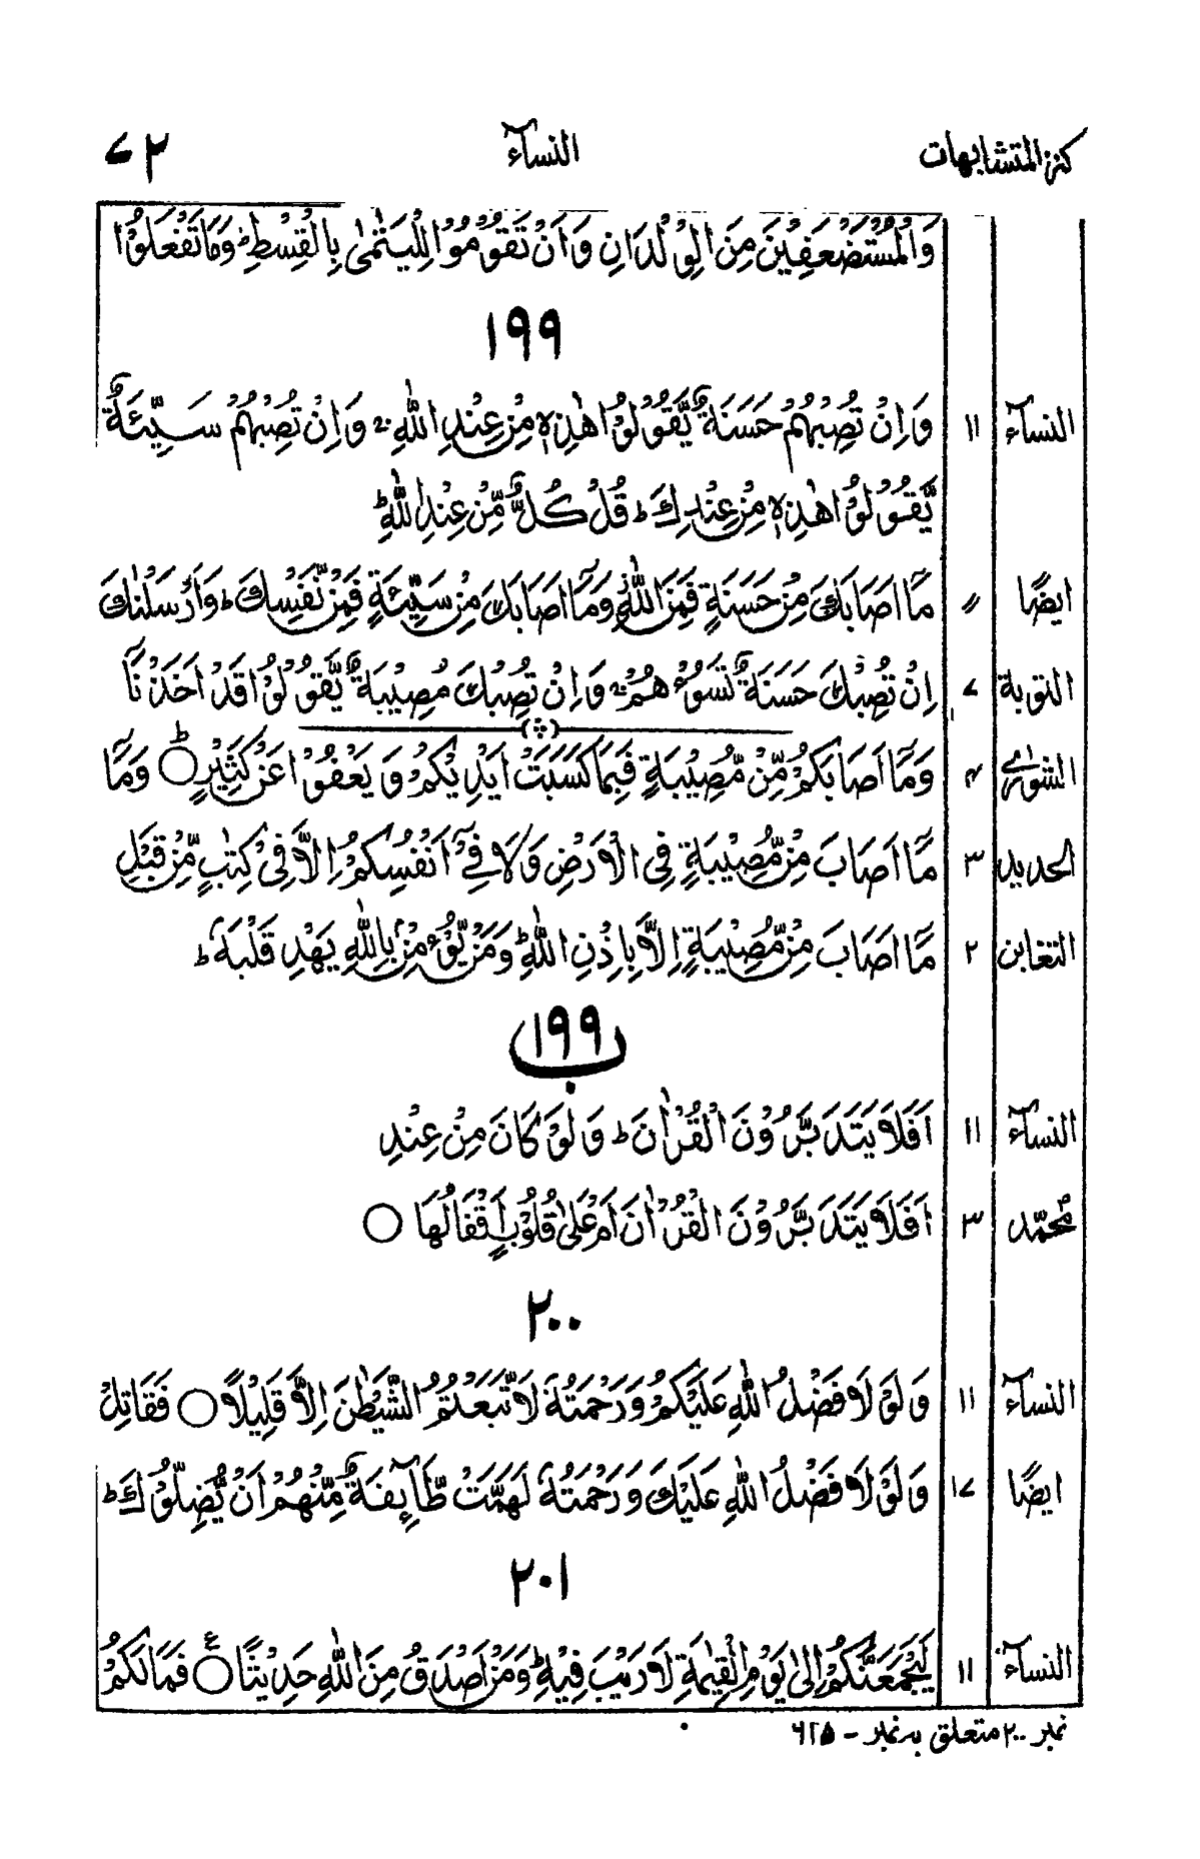 كنز المتشابهات النسآء ۷۲
وَالْمُسْتَضْعَفِيْنَ مِنَ الْوِلْدَانِ وَاَنْ تَقُوْمُوْا لِلْيَتٰمٰى بِالْقِسْطِ ؕ وَمَا تَفْعَلُوْا
۱۹۹
النسآء ۱۱ وَاِنْ تُصِبْهُمْ حَسَنَةٌ يَّقُوْلُوْا هٰذِهٖ مِنْ عِنْدِ اللّٰهِ ۚ وَاِنْ تُصِبْهُمْ سَيِّئَةٌ
يَّقُوْلُوْا هٰذِهٖ مِنْ عِنْدِكَ ؕ قُلْ كُلٌّ مِّنْ عِنْدِ اللّٰهِ ؕ
ايضًا 〃 مَآ اَصَابَكَ مِنْ حَسَنَةٍ فَمِنَ اللّٰهِ ز وَمَآ اَصَابَكَ مِنْ سَيِّئَةٍ فَمِنْ نَّفْسِكَ ؕ وَاَرْسَلْنٰكَ
التوبة ۷ اِنْ تُصِبْكَ حَسَنَةٌ تَسُؤْهُمْ ۚ وَاِنْ تُصِبْكَ مُصِيْبَةٌ يَّقُوْلُوْا قَدْ اَخَذْنَآ
الشورٰى ۴ وَمَآ اَصَابَكُمْ مِّنْ مُّصِيْبَةٍ فَبِمَا كَسَبَتْ اَيْدِيْكُمْ وَيَعْفُوْا عَنْ كَثِيْرٍ ○ؕ وَمَآ
الحديد ۳ مَآ اَصَابَ مِنْ مُّصِيْبَةٍ فِى الْاَرْضِ وَلَا فِىْٓ اَنْفُسِكُمْ اِلَّا فِىْ كِتٰبٍ مِّنْ قَبْلِ
التغابن ۲ مَآ اَصَابَ مِنْ مُّصِيْبَةٍ اِلَّا بِاِذْنِ اللّٰهِ ؕ وَمَنْ يُّؤْمِنْۢ بِاللّٰهِ يَهْدِ قَلْبَهٗ ؕ
۱۹۹ ب
النسآء ۱۱ اَفَلَا يَتَدَبَّرُوْنَ الْقُرْاٰنَ ؕ وَلَوْ كَانَ مِنْ عِنْدِ
مُحمّد ۳ اَفَلَا يَتَدَبَّرُوْنَ الْقُرْاٰنَ اَمْ عَلٰى قُلُوْبٍ اَقْفَالُهَا ○
۲۰۰
النسآء ۱۱ وَلَوْ لَا فَضْلُ اللّٰهِ عَلَيْكُمْ وَرَحْمَتُهٗ لَاتَّبَعْتُمُ الشَّيْطٰنَ اِلَّا قَلِيْلًا ○ فَقَاتِلْ
ايضًا ۱۷ وَلَوْ لَا فَضْلُ اللّٰهِ عَلَيْكَ وَرَحْمَتُهٗ لَهَمَّتْ طَّآئِفَةٌ مِّنْهُمْ اَنْ يُّضِلُّوْكَ ؕ
۲۰۱
النسآء ۱۱ لَيَجْمَعَنَّكُمْ اِلٰى يَوْمِ الْقِيٰمَةِ لَا رَيْبَ فِيْهِ ؕ وَمَنْ اَصْدَقُ مِنَ اللّٰهِ حَدِيْثًا ○ع فَمَا لَكُمْ
نمبر ۲۰۰ متعلق به نمبر - ۶۲۵